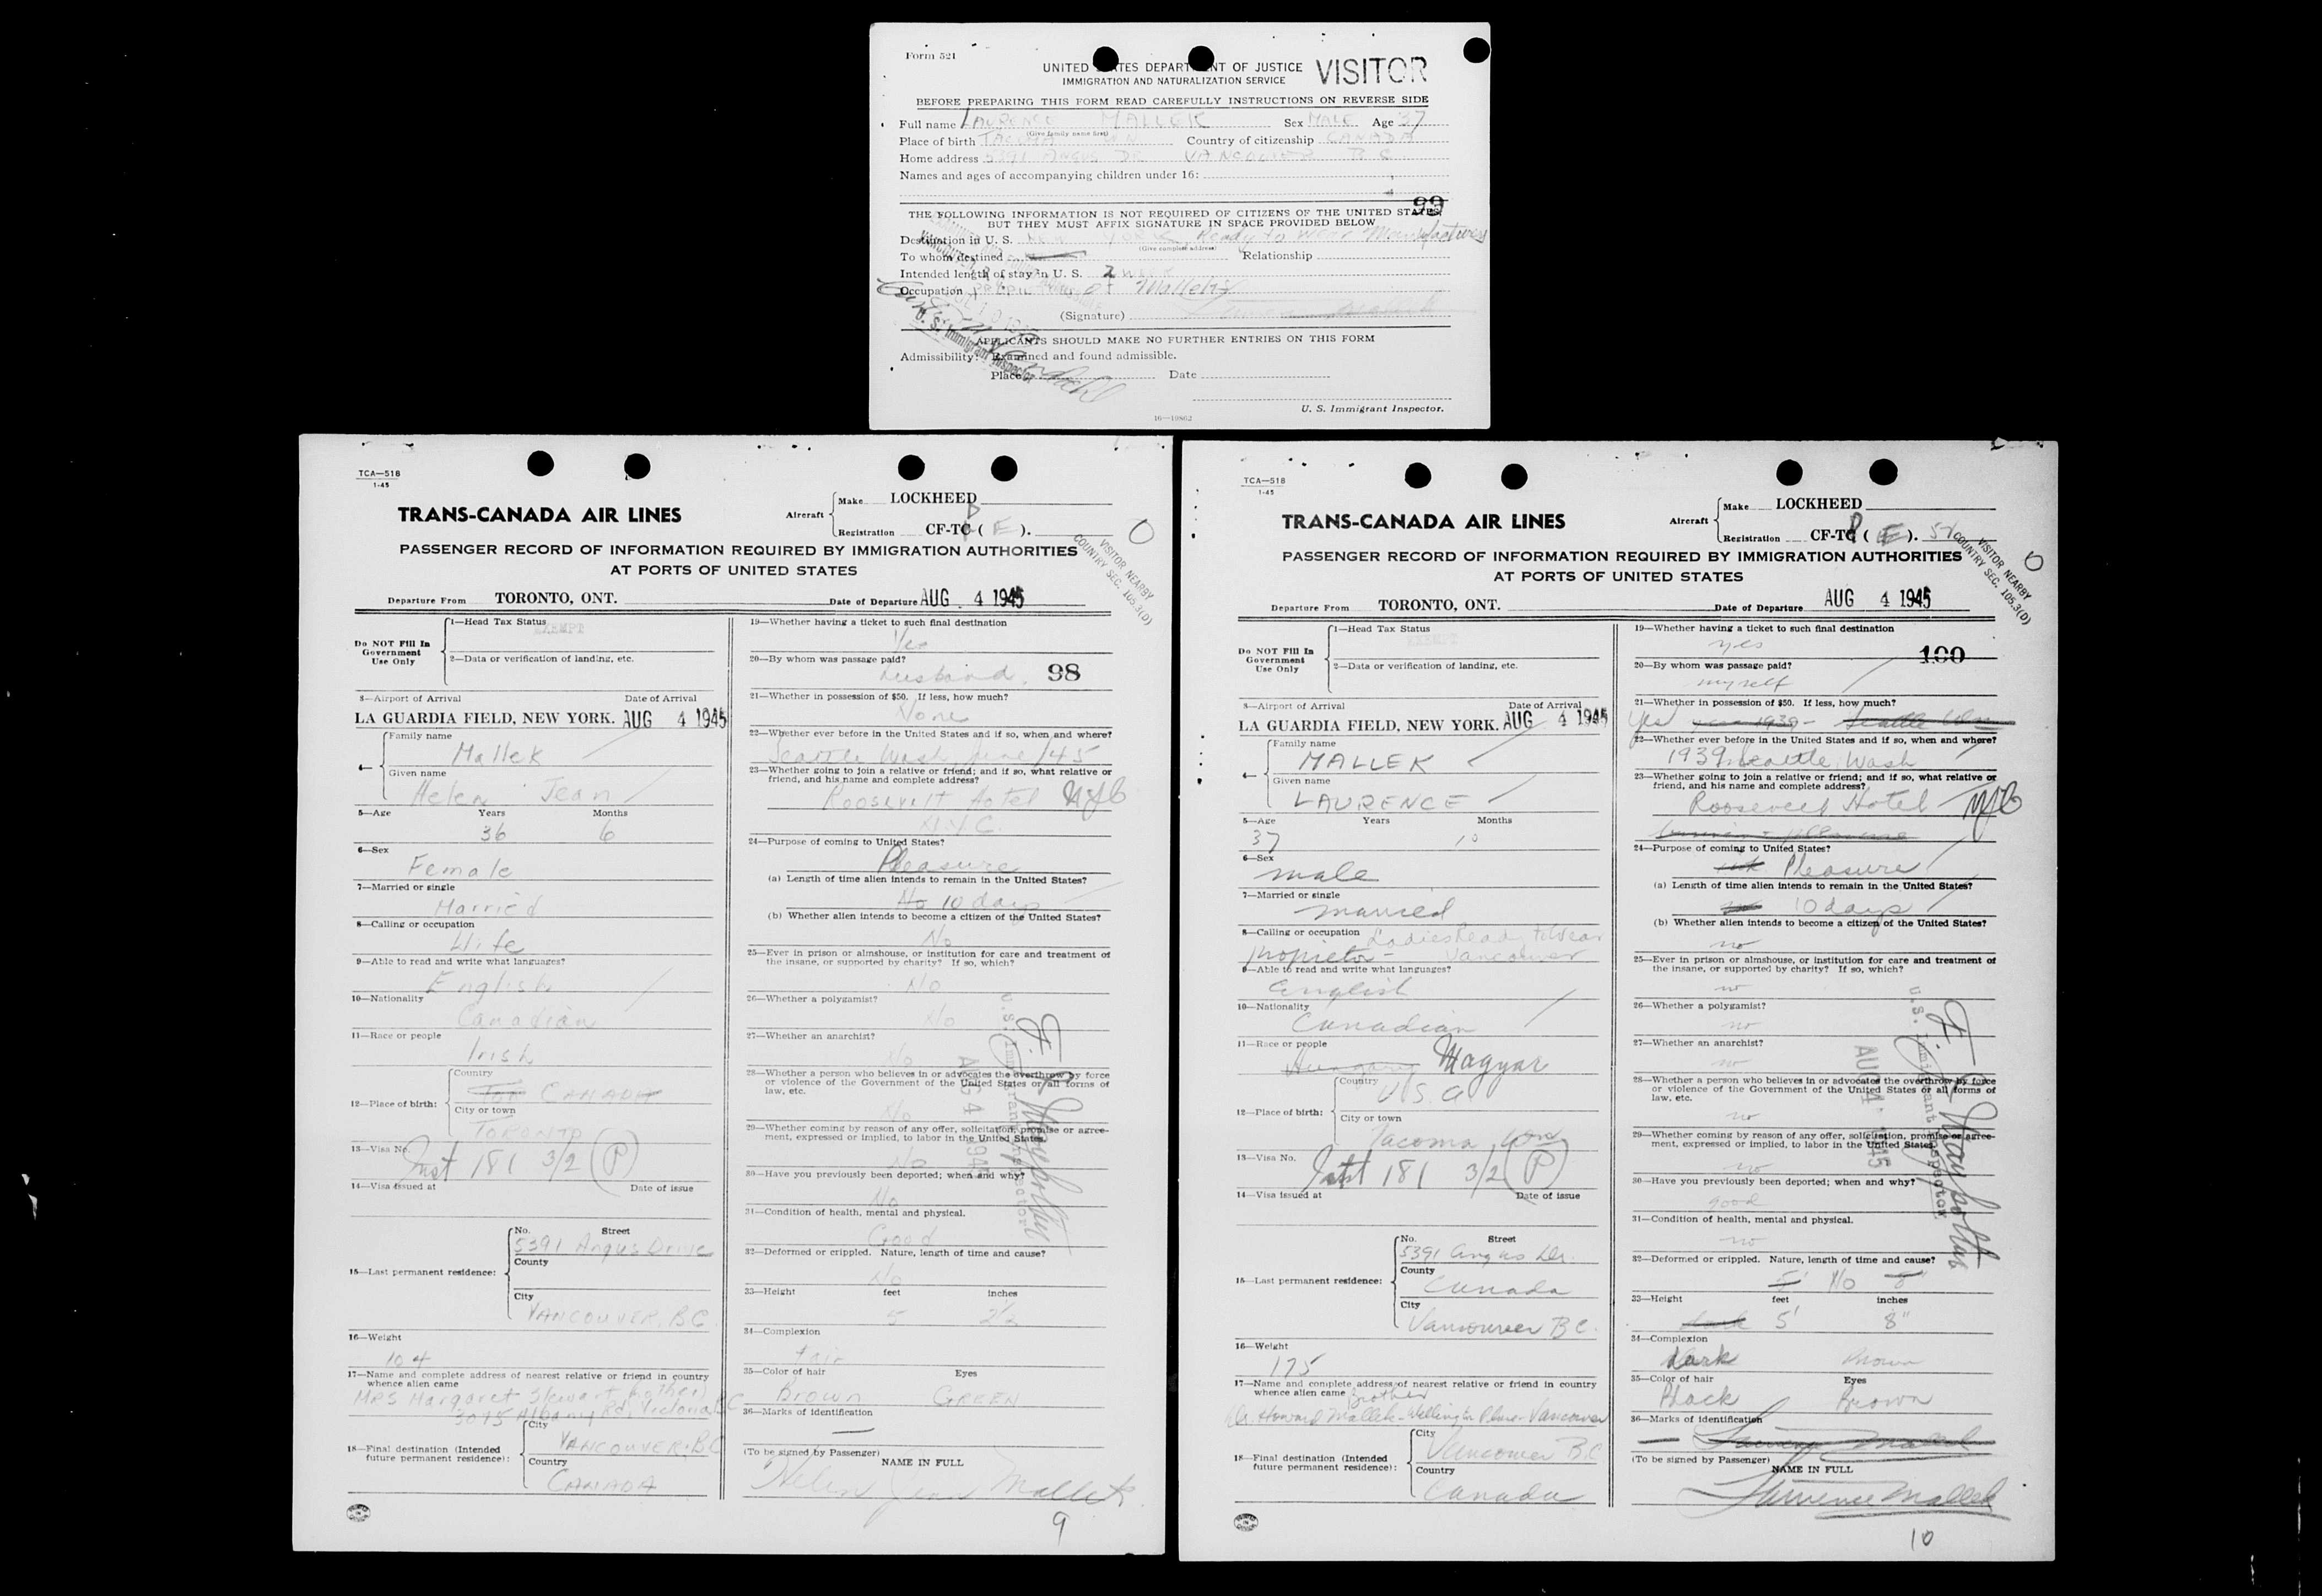 Form 521
UNITED STATES DEPARTMENT OF JUSTICE
IMMIGRATION AND NATURALIZATION SERVICE
VISITOR
BEFORE PREPARING THIS FORM READ CAREFULLY INSTRUCTIONS ON REVERSE SIDE
Full name LAURENCE MALLEK Sex MALE Age 37
(Give family name first)
Place of birth TACOMA Country of citizenship CANADA
Home address 5391 ANGUS DR VANCOUVER B C
Names and ages of accompanying children under 16:
99
THE FOLLOWING INFORMATION IS NOT REQUIRED OF CITIZENS OF THE UNITED STATES,
BUT THEY MUST AFFIX SIGNATURE IN SPACE PROVIDED BELOW
Destination in U. S. NEW YORK Ready to wear Manufacturers
(Give complete address)
To whom destined Relationship
Intended length of stay in U. S. 2
Occupation of Malleks
(Signature)
U. S. Immigrant Inspector
APPLICANTS SHOULD MAKE NO FURTHER ENTRIES ON THIS FORM
Admissibility: Examined and found admissible.
Place Date
U. S. Immigrant Inspector.
16—19862
TCA—518
1-45
TRANS-CANADA AIR LINES
Aircraft
Make LOCKHEED
Registration CF-TC ( E ).
PASSENGER RECORD OF INFORMATION REQUIRED BY IMMIGRATION AUTHORITIES
AT PORTS OF UNITED STATES
VISITOR NEARBY
COUNTRY SEC. 105.3(D)
Departure From TORONTO, ONT. Date of Departure AUG 4 1945
Do NOT Fill In Government Use Only
1—Head Tax Status EXEMPT
2—Data or verification of landing, etc.
3—Airport of Arrival Date of Arrival
LA GUARDIA FIELD, NEW YORK. AUG 4 1945
4— Family name
Mallek
Given name
Helen Jean
5—Age Years Months
36 6
6—Sex
Female
7—Married or single
Married
8—Calling or occupation
Wife
9—Able to read and write what languages?
English
10—Nationality
Canadian
11—Race or people
Irish
12—Place of birth: Country
CANADA
City or town
TORONTO
13—Visa No.
Inst 181 3/2 (P)
14—Visa issued at Date of issue
15—Last permanent residence: No. Street
5391 Angus Drive
County
City
VANCOUVER, B.C.
16—Weight
104
17—Name and complete address of nearest relative or friend in country
whence alien came
MRS Margaret Stewart (mother)
3075 Albany Rd, Victoria B.C
18—Final destination (Intended
future permanent residence): City
VANCOUVER, B.C
Country
CANADA
19—Whether having a ticket to such final destination
Yes
20—By whom was passage paid?
Husband. 98
21—Whether in possession of $50. If less, how much?
None
22—Whether ever before in the United States and if so, when and where?
Seattle Wash June /45
23—Whether going to join a relative or friend; and if so, what relative or
friend, and his name and complete address?
Roosevelt Hotel NYC
N.Y.C.
24—Purpose of coming to United States?
Pleasure
(a) Length of time alien intends to remain in the United States?
No 10 days
(b) Whether alien intends to become a citizen of the United States?
No
25—Ever in prison or almshouse, or institution for care and treatment of
the insane, or supported by charity? If so, which?
No
26—Whether a polygamist?
No
27—Whether an anarchist?
No
28—Whether a person who believes in or advocates the overthrow by force
or violence of the Government of the United States or all forms of
law, etc.
No
29—Whether coming by reason of any offer, solicitation, promise or agree-
ment, expressed or implied, to labor in the United States.
No
30—Have you previously been deported; when and why?
No
31—Condition of health, mental and physical.
Good
32—Deformed or crippled. Nature, length of time and cause?
No
33—Height feet inches
5 2½
34—Complexion
Fair
35—Color of hair Eyes
Brown GREEN
36—Marks of identification
—
(To be signed by Passenger)
NAME IN FULL
Helen Jean Mallek
AUG 4 1945
U.S. Immigrant Inspector
9
TCA—518
1-45
TRANS-CANADA AIR LINES
Aircraft
Make LOCKHEED
Registration CF-TC ( E ).
PASSENGER RECORD OF INFORMATION REQUIRED BY IMMIGRATION AUTHORITIES
AT PORTS OF UNITED STATES
VISITOR NEARBY
COUNTRY SEC. 105.3(D)
Departure From TORONTO, ONT. Date of Departure AUG 4 1945
Do NOT Fill In Government Use Only
1—Head Tax Status EXEMPT
2—Data or verification of landing, etc.
3—Airport of Arrival Date of Arrival
LA GUARDIA FIELD, NEW YORK. AUG 4 1945
4— Family name
MALLEK
Given name
LAURENCE
5—Age Years Months
37 10
6—Sex
male
7—Married or single
married
8—Calling or occupation Ladies Ready to Wear
Propietor - Vancouver
9—Able to read and write what languages?
English
10—Nationality
Canadian
11—Race or people
Hungary Magyar
12—Place of birth: Country
U.S.A
City or town
Tacoma, Wn
13—Visa No.
Inst 181 3/2 (P)
14—Visa issued at Date of issue
15—Last permanent residence: No. Street
5391 Angus Dr.
County
Canada
City
Vancouver B C.
16—Weight
175
17—Name and complete address of nearest relative or friend in country
whence alien came Brother
Dr. Howard Mallek - Vancouver
18—Final destination (Intended
future permanent residence): City
Vancouver B.C
Country
Canada
19—Whether having a ticket to such final destination
yes 100
20—By whom was passage paid?
myself
21—Whether in possession of $50. If less, how much?
Yes 1939 -
22—Whether ever before in the United States and if so, when and where?
1939, Seattle, Wash
23—Whether going to join a relative or friend; and if so, what relative or
friend, and his name and complete address?
Roosevelt Hotel NYC
24—Purpose of coming to United States?
Pleasure
(a) Length of time alien intends to remain in the United States?
10 days
(b) Whether alien intends to become a citizen of the United States?
no
25—Ever in prison or almshouse, or institution for care and treatment of
the insane, or supported by charity? If so, which?
no
26—Whether a polygamist?
no
27—Whether an anarchist?
no
28—Whether a person who believes in or advocates the overthrow by force
or violence of the Government of the United States or all forms of
law, etc.
no
29—Whether coming by reason of any offer, solicitation, promise or agree-
ment, expressed or implied, to labor in the United States.
no
30—Have you previously been deported; when and why?
good
31—Condition of health, mental and physical.
no
32—Deformed or crippled. Nature, length of time and cause?
5' No 8"
33—Height feet inches
dark 5' 8"
34—Complexion
Dark Brown
35—Color of hair Eyes
Black Brown
36—Marks of identification
—
(To be signed by Passenger)
NAME IN FULL
Laurence Mallek
AUG 4 1945
U.S. Immigrant Inspector
10